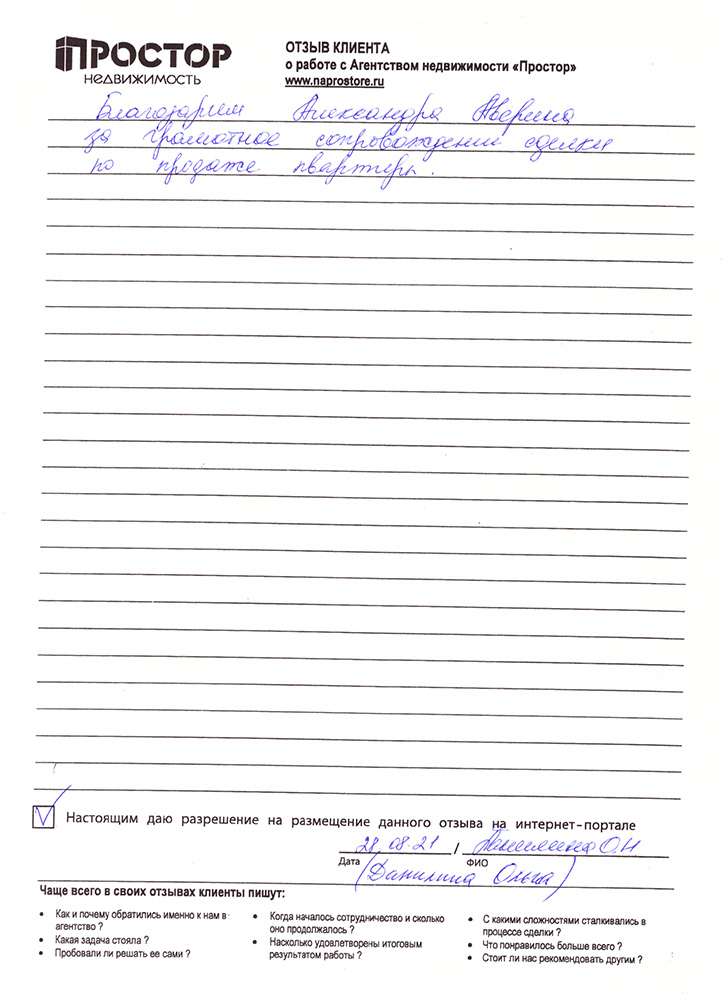 ПРОСТОР
НЕДВИЖИМОСТЬ
ОТЗЫВ КЛИЕНТА
о работе с Агентством недвижимости «Простор»
www.naprostore.ru
Благодарим Александра Аверина
за грамотное сопровождении сделки
по продаже квартиры.
Настоящим даю разрешение на размещение данного отзыва на интернет-портале
28.08.21 / Данилина О.Н
Дата ФИО
(Данилина Ольга)
Чаще всего в своих отзывах клиенты пишут:
• Как и почему обратились именно к нам в
агентство ?
• Какая задача стояла ?
• Пробовали ли решать ее сами ?
• Когда началось сотрудничество и сколько
оно продолжалось ?
• Насколько удовлетворены итоговым
результатом работы ?
• С какими сложностями сталкивались в
процессе сделки ?
• Что понравилось больше всего ?
• Стоит ли нас рекомендовать другим ?